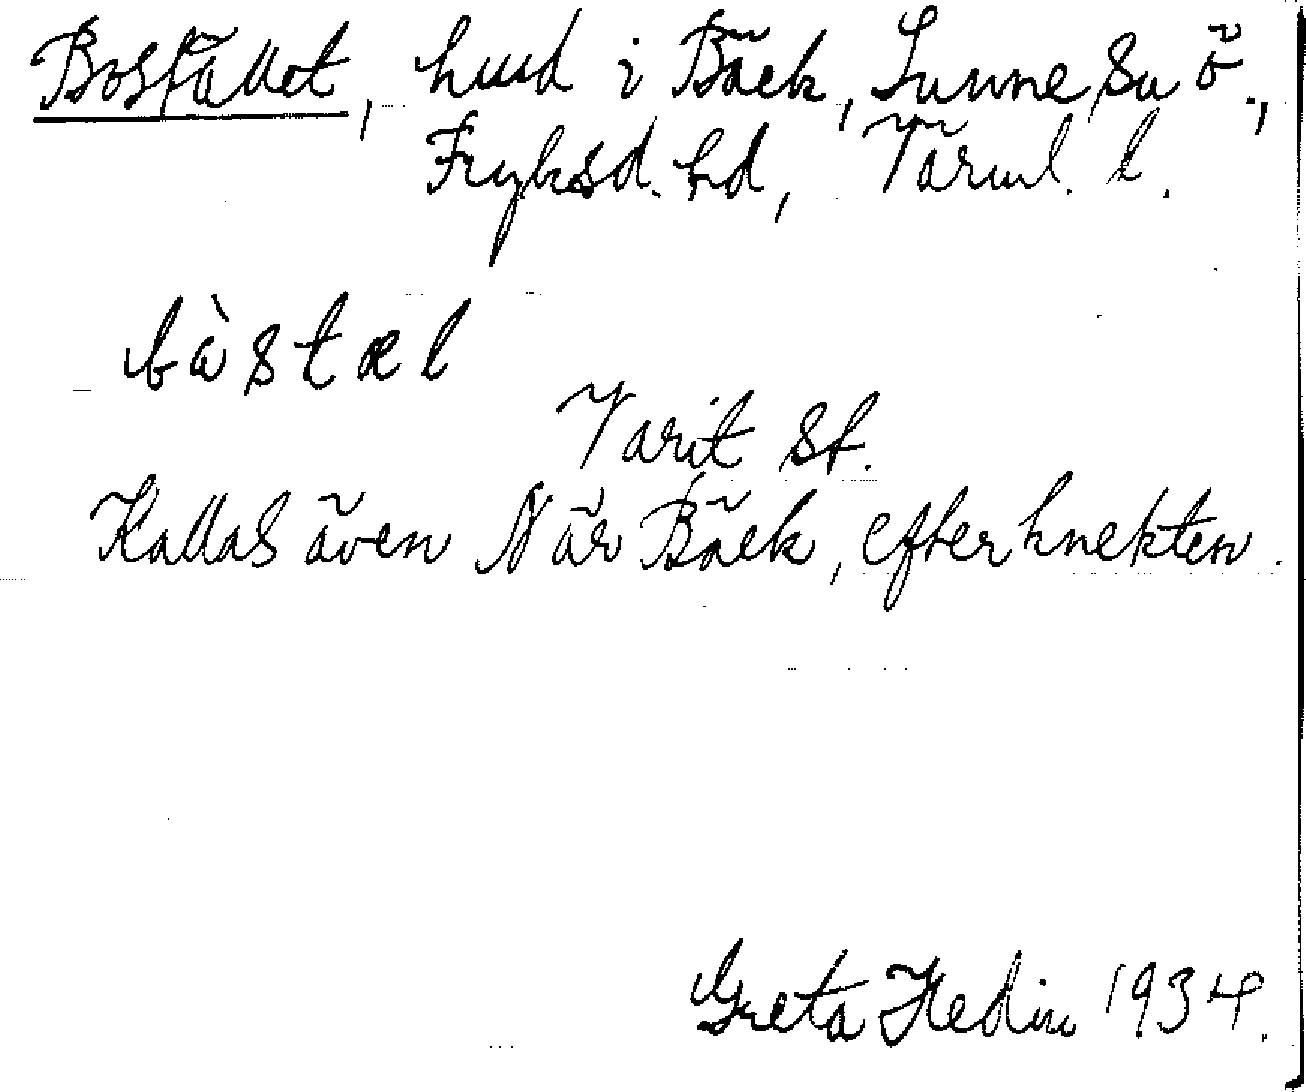 Bostället, hmd i Bäck, Sunne sn ö.,
Fryksd. hd, Värml. l.
bàstæl
Varit st.
Kallas även När Bäck, efter knekten.
Greta Hedin 1934.